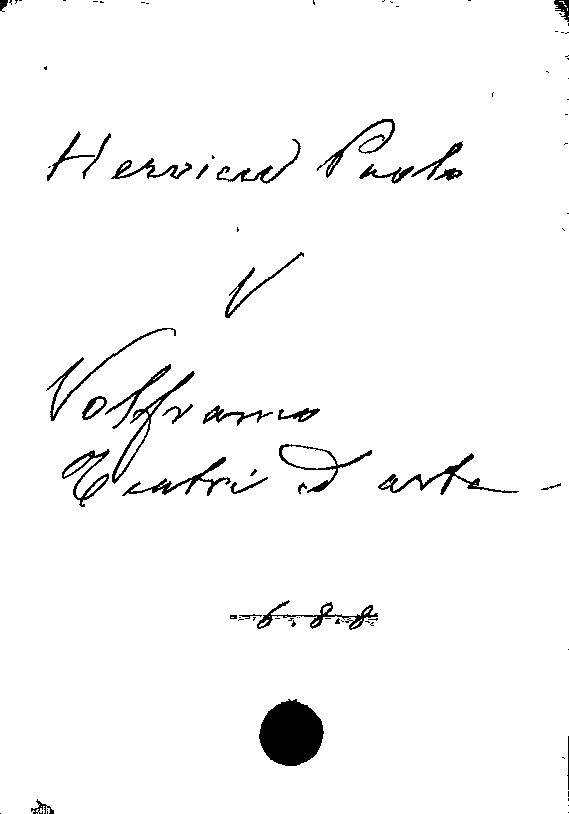 Hervieu Paolo
V
Volframo
Teatri d'arte
6.8.8